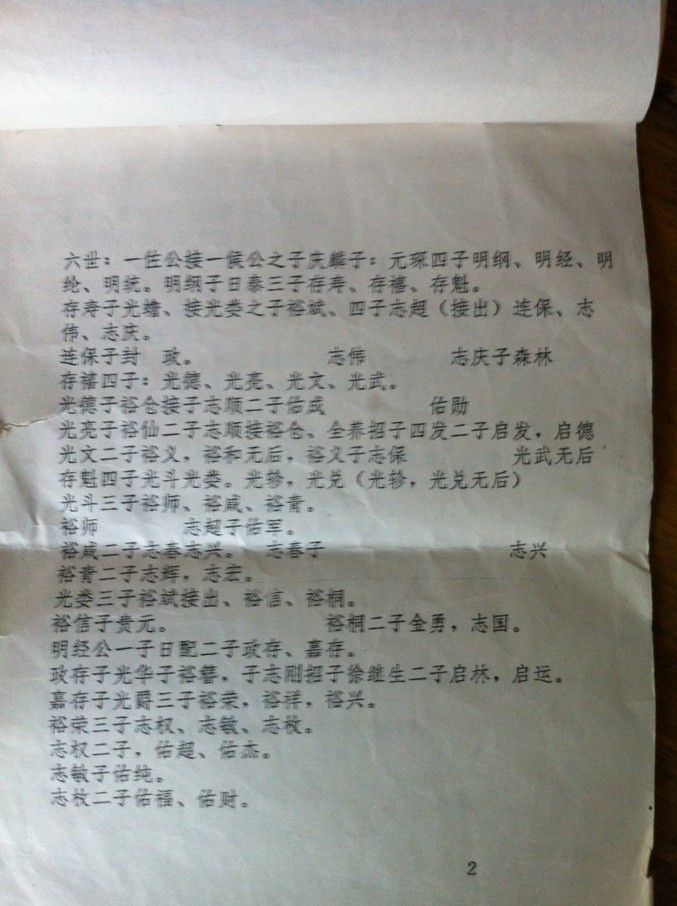 六世：一佐公接一候公之子庆麟子：元琛四子明纲、明经、明
纶、明统。明纲子日泰三子存寿、存禧、存魁。
存寿子光蟾、接光娄之子裕斌、四子志超（接出）连保、志
伟、志庆。
连保子封 政。 志伟 志庆子森林
存禧四子：光德、光亮、光文、光武。
光德子裕仓接子志顺二子佑成 佑勋
光亮子裕仙二子志顺接裕仓、全养招子四发二子启发，启德
光文二子裕义，裕和无后，裕义子志保 光武无后
存魁四子光斗光娄。光轸，光兑（光轸，光兑无后）
光斗三子裕师、裕咸、裕青。
裕师 志超子佑军。
裕咸二子志春志兴。 志春子 志兴
裕青二子志辉，志宏。
光娄三子裕斌接出、裕信、裕桐。
裕信子贵元。 裕桐二子金勇，志国。
明经公一子日配二子政存、嘉存。
政存子光华子裕簪，于志刚招子徐继生二子启林，启运。
嘉存子光爵三子裕荣，裕祥，裕兴。
裕荣三子志权、志敏、志枚。
志权二子，佑超、佑杰。
志敏子佑纯。
志枚二子佑福、佑财。
2